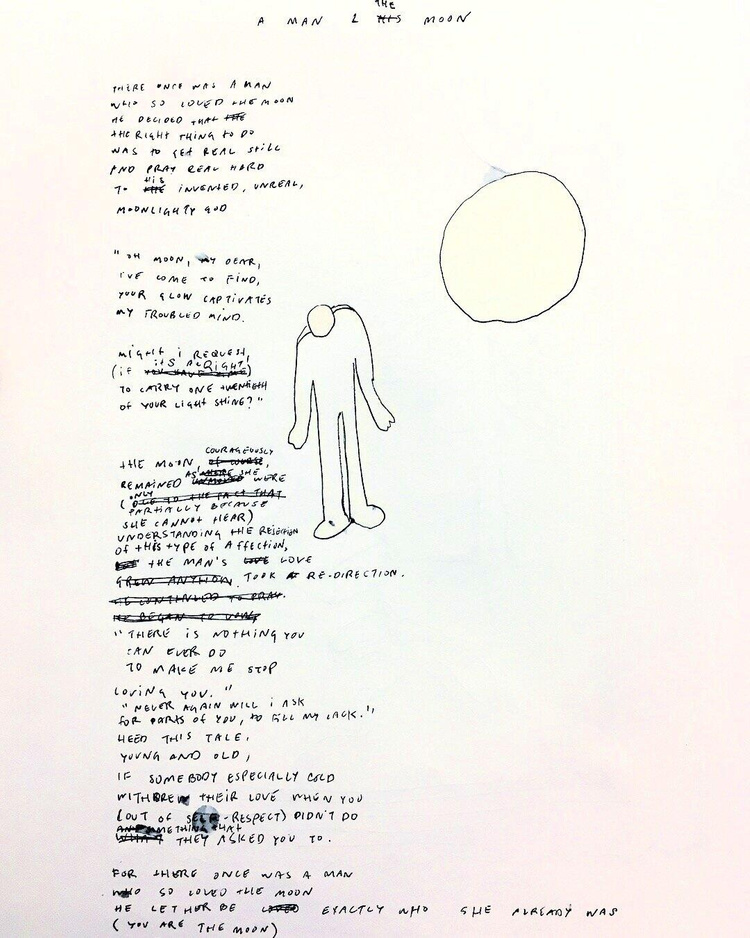 A MAN & THE MOON
THERE ONCE WAS A MAN
WHO SO LOVED THE MOON
HE DECIDED THAT THE
THE RIGHT THING TO DO
WAS TO GET REAL STILL
AND PRAY REAL HARD
TO HIS INVENTED, UNREAL,
MOONLIGHTY GOD
"OH MOON, MY DEAR,
I'VE COME TO FIND,
YOUR GLOW CAPTIVATES
MY TROUBLED MIND.
MIGHT I REQUEST,
(IF IT'S ALRIGHT)
TO CARRY ONE TWENTIETH
OF YOUR LIGHT SHINE?"
THE MOON COURAGEOUSLY,
REMAINED AS SHE WERE
(ONLY DUE TO THE FACT THAT
PARTIALLY BECAUSE
SHE CANNOT HEAR)
UNDERSTANDING THE REJECTION
OF THIS TYPE OF AFFECTION,
THE MAN'S LOVE LOVE
GREW ANYHOW. TOOK A RE-DIRECTION.
HE CONTINUED TO PRAY.
HE BEGAN TO VOW,
"THERE IS NOTHING YOU
CAN EVER DO
TO MAKE ME STOP
LOVING YOU."
"NEVER AGAIN WILL I ASK
FOR PARTS OF YOU, TO FILL MY LACK."
HEED THIS TALE,
YOUNG AND OLD,
IF SOMEBODY ESPECIALLY COLD
WITHDREW THEIR LOVE WHEN YOU
(OUT OF SELF-RESPECT) DIDN'T DO
ANYSOMETHING THAT
WHAT THEY ASKED YOU TO.
FOR THERE ONCE WAS A MAN
WHO SO LOVED THE MOON
HE LET HER BE LOVED EXACTLY WHO SHE ALREADY WAS
(YOU ARE THE MOON)